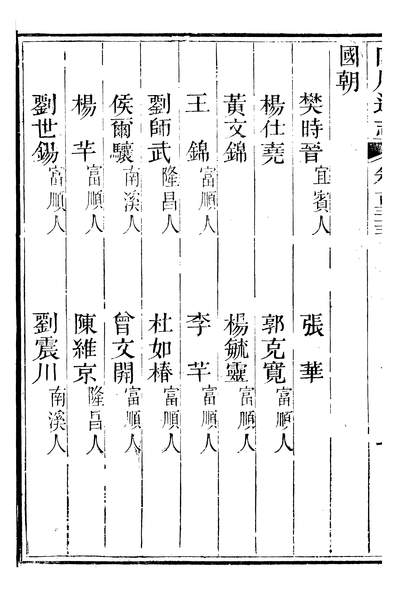 四川通志
國朝
樊時晉宜賓人 張華
楊仕堯 郭克寬富順人
黃文錦 楊毓靈富順人
王錦富順人 李芊富順人
劉師武隆昌人 杜如椿富順人
侯爾驤南溪人 曾文開富順人
楊芊富順人 陳維京隆昌人
劉世錫富順人 劉震川南溪人